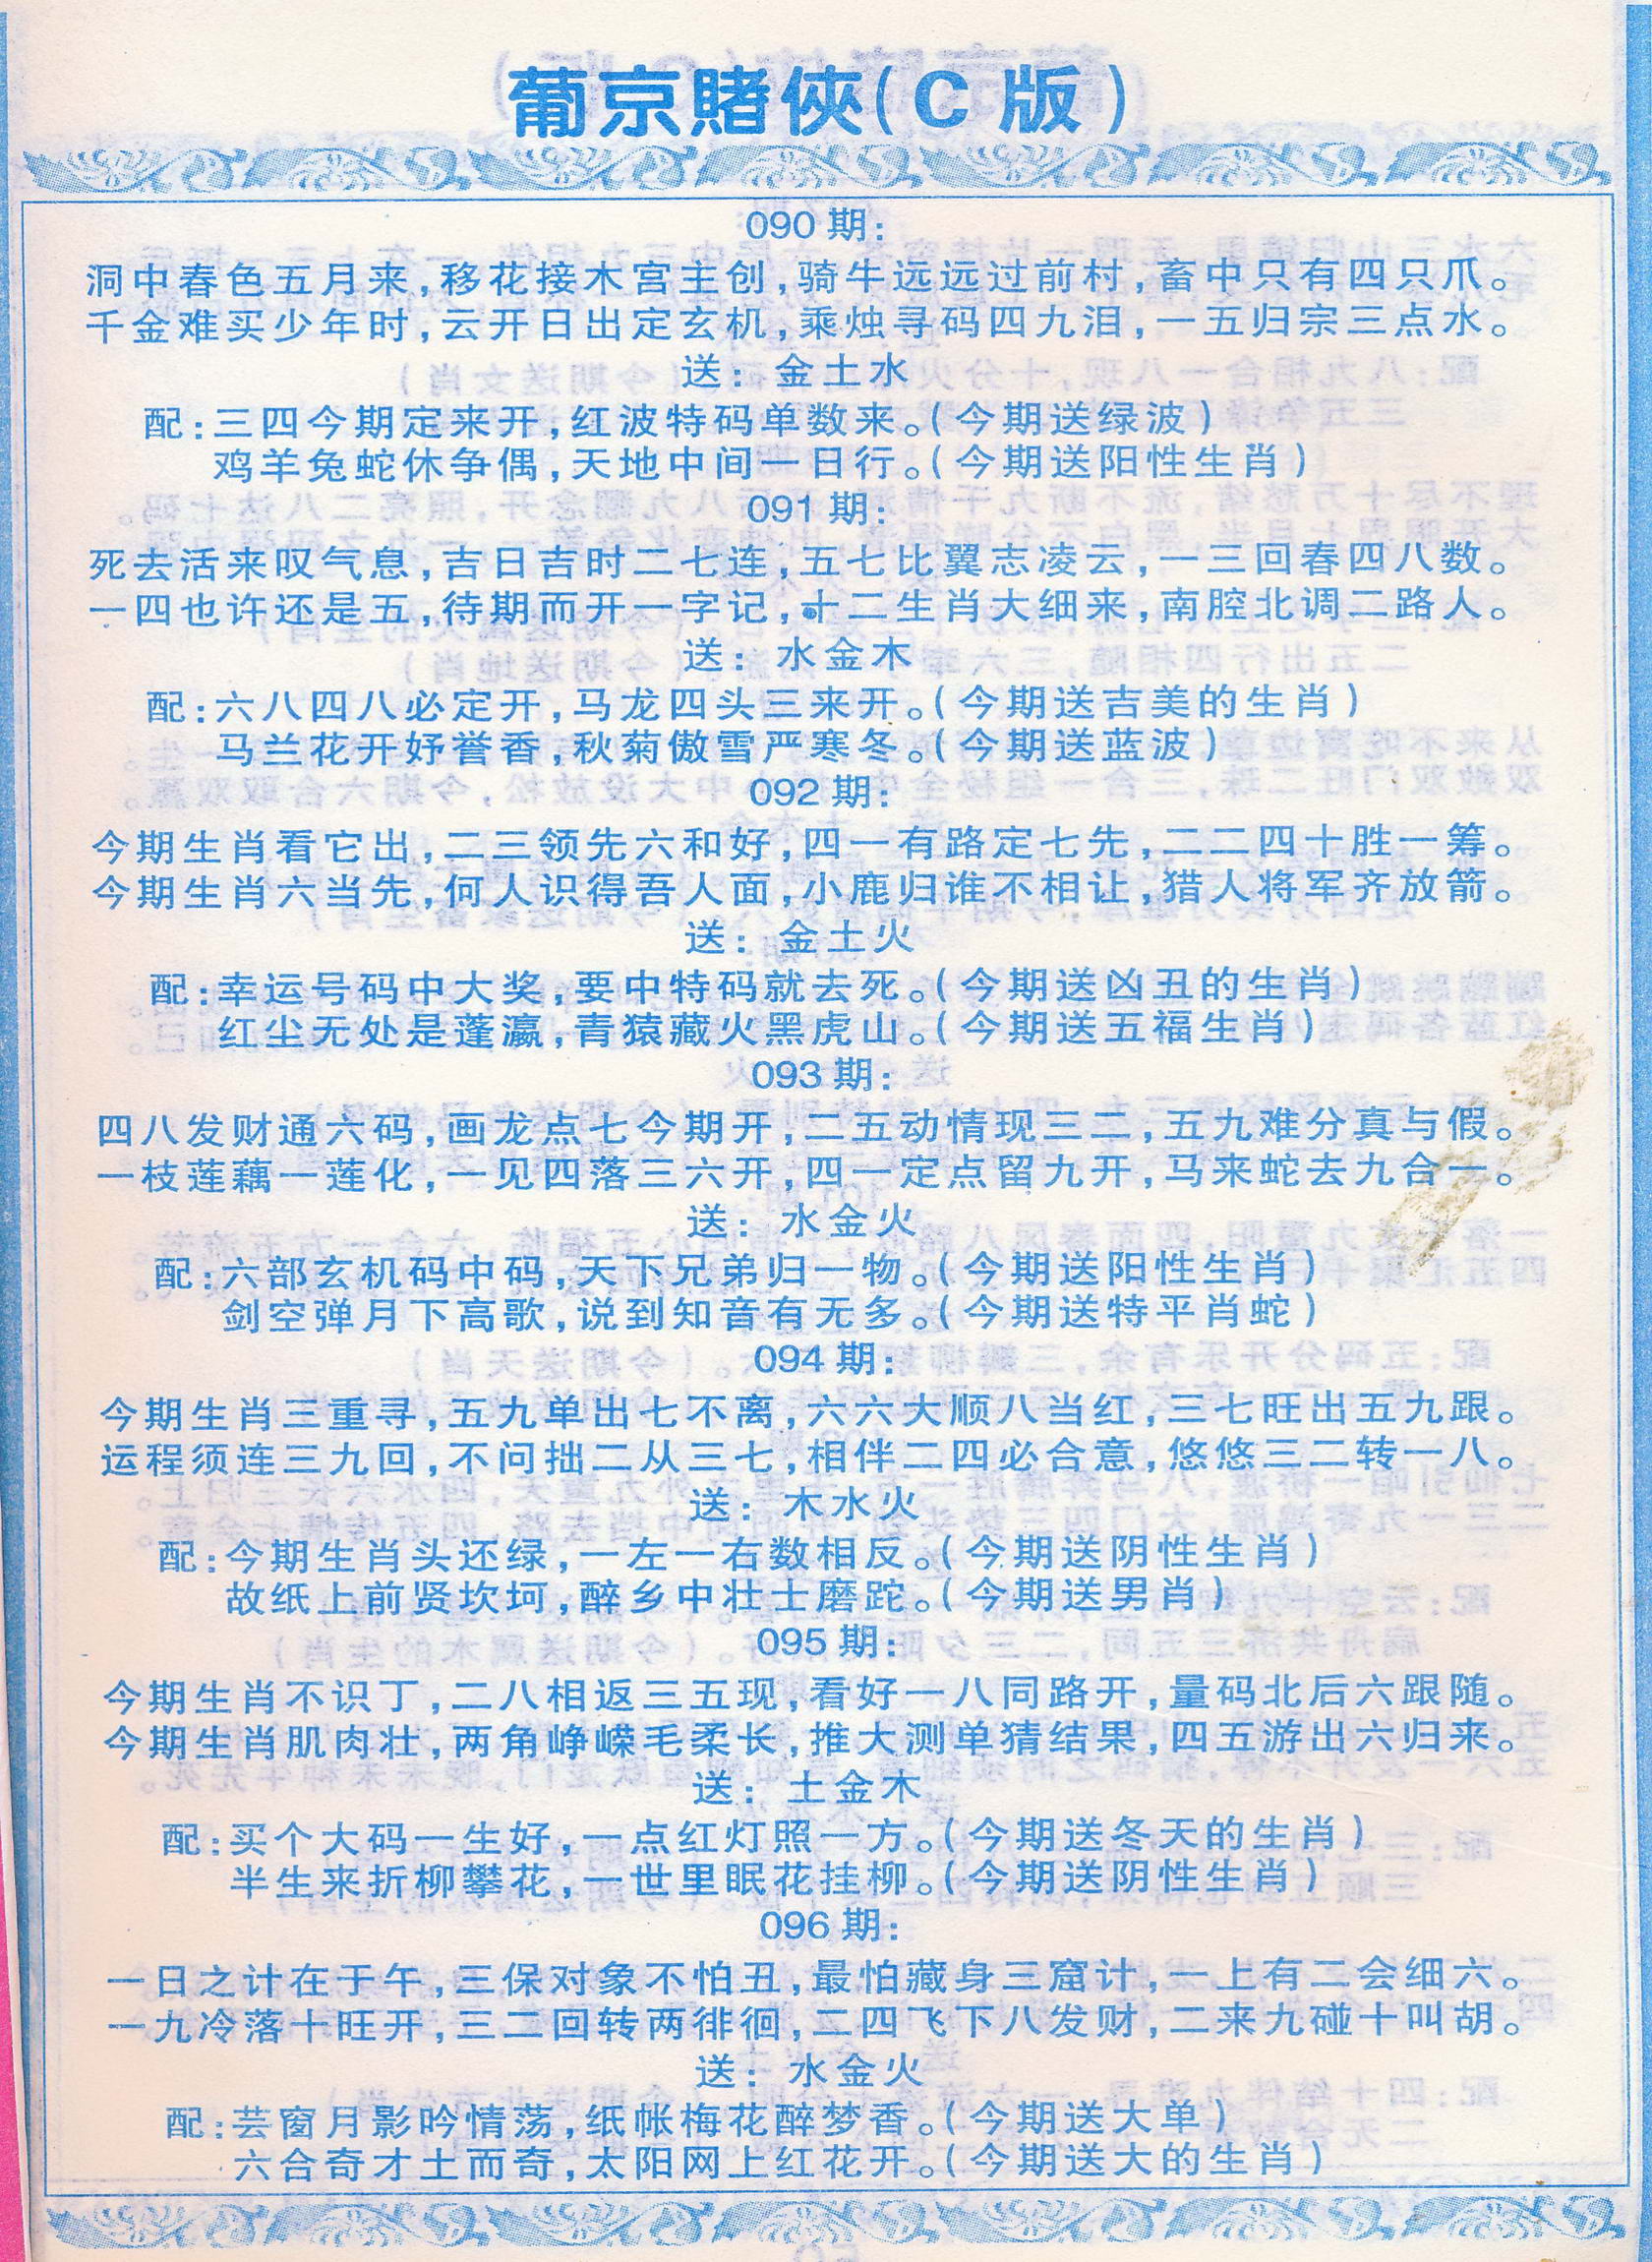 葡京賭俠(C版)
090期:
洞中春色五月来,移花接木宫主创,骑牛远远过前村,畜中只有四只爪。
千金难买少年时,云开日出定玄机,乘烛寻码四九泪,一五归宗三点水。
送: 金土水
配:三四今期定来开,红波特码单数来。(今期送绿波)
鸡羊兔蛇休争偶,天地中间一日行。(今期送阳性生肖)
091期:
死去活来叹气息,吉日吉时二七连,五七比翼志凌云,一三回春四八数。
一四也许还是五,待期而开一字记,十二生肖大细来,南腔北调二路人。
送: 水金木
配:六八四八必定开,马龙四头三来开。(今期送吉美的生肖)
马兰花开妤誉香,秋菊傲雪严寒冬。(今期送蓝波)
092期:
今期生肖看它出,二三领先六和好,四一有路定七先,二二四十胜一筹。
今期生肖六当先,何人识得吾人面,小鹿归谁不相让,猎人将军齐放箭。
送: 金土火
配:幸运号码中大奖,要中特码就去死。(今期送凶丑的生肖)
红尘无处是蓬瀛,青猿藏火黑虎山。(今期送五福生肖)
093期:
四八发财通六码,画龙点七今期开,二五动情现三二,五九难分真与假。
一枝莲藕一莲化,一见四落三六开,四一定点留九开,马来蛇去九合一。
送: 水金火
配:六部玄机码中码,天下兄弟归一物。(今期送阳性生肖)
剑空弹月下高歌,说到知音有无多。(今期送特平肖蛇)
094期:
今期生肖三重寻,五九单出七不离,六六大顺八当红,三七旺出五九跟。
运程须连三九回,不问拙二从三七,相伴二四必合意,悠悠三二转一八。
送: 木水火
配:今期生肖头还绿,一左一右数相反。(今期送阴性生肖)
故纸上前贤坎坷,醉乡中壮士磨跎。(今期送男肖)
095期:
今期生肖不识丁,二八相返三五现,看好一八同路开,量码北后六跟随。
今期生肖肌肉壮,两角峥嵘毛柔长,推大测单猜结果,四五游出六归来。
送: 土金木
配:买个大码一生好,一点红灯照一方。(今期送冬天的生肖)
半生来折柳攀花,一世里眠花挂柳。(今期送阴性生肖)
096期:
一日之计在于午,三保对象不怕丑,最怕藏身三窟计,一上有二会细六。
一九冷落十旺开,三二回转两徘徊,二四飞下八发财,二来九碰十叫胡。
送: 水金火
配:芸窗月影吟情荡,纸帐梅花醉梦香。(今期送大单)
六合奇才土而奇,太阳网上红花开。(今期送大的生肖)